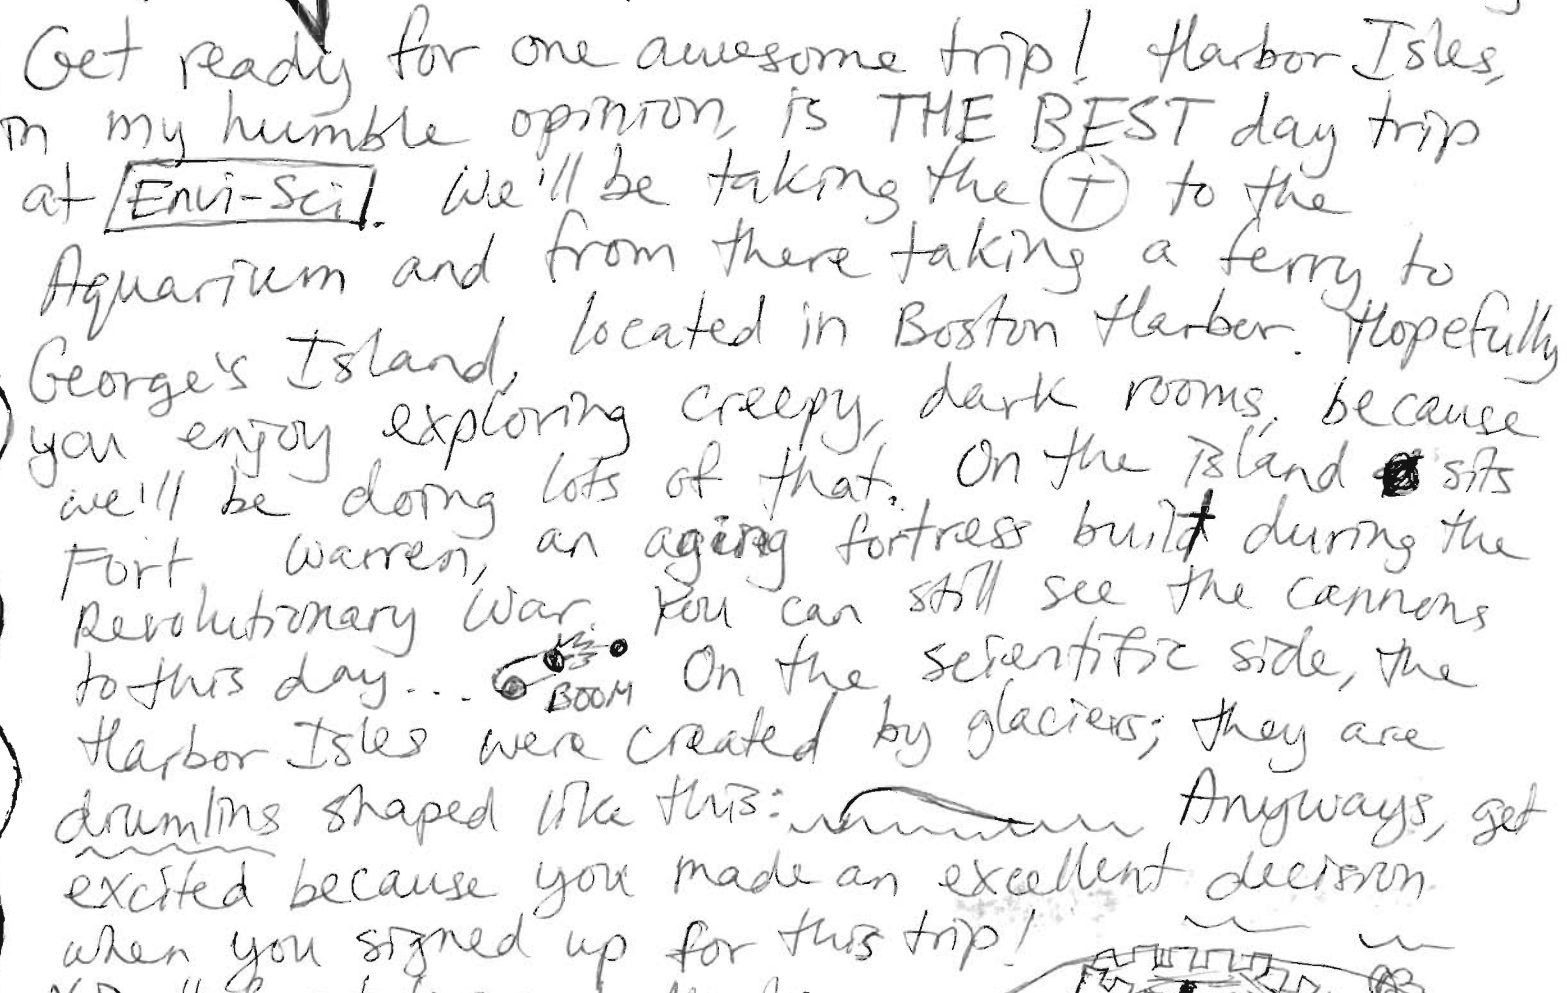 Get ready for one awesome trip! Harbor Isles,
in my humble opinion, is THE BEST day trip
at Envi-Sci. We'll be taking the T to the
Aquarium and from there taking a ferry to
George's Island, located in Boston Harbor. Hopefully
you enjoy exploring creepy, dark rooms, because
we'll be doing lots of that. On the island sits
Fort Warren, an aging fortress built during the
Revolutionary War. You can still see the cannons
to this day... BOOM On the scientific side, the
Harbor Isles were created by glaciers; they are
drumlins shaped like this: Anyways, get
excited because you made an excellent decision
when you signed up for this trip!